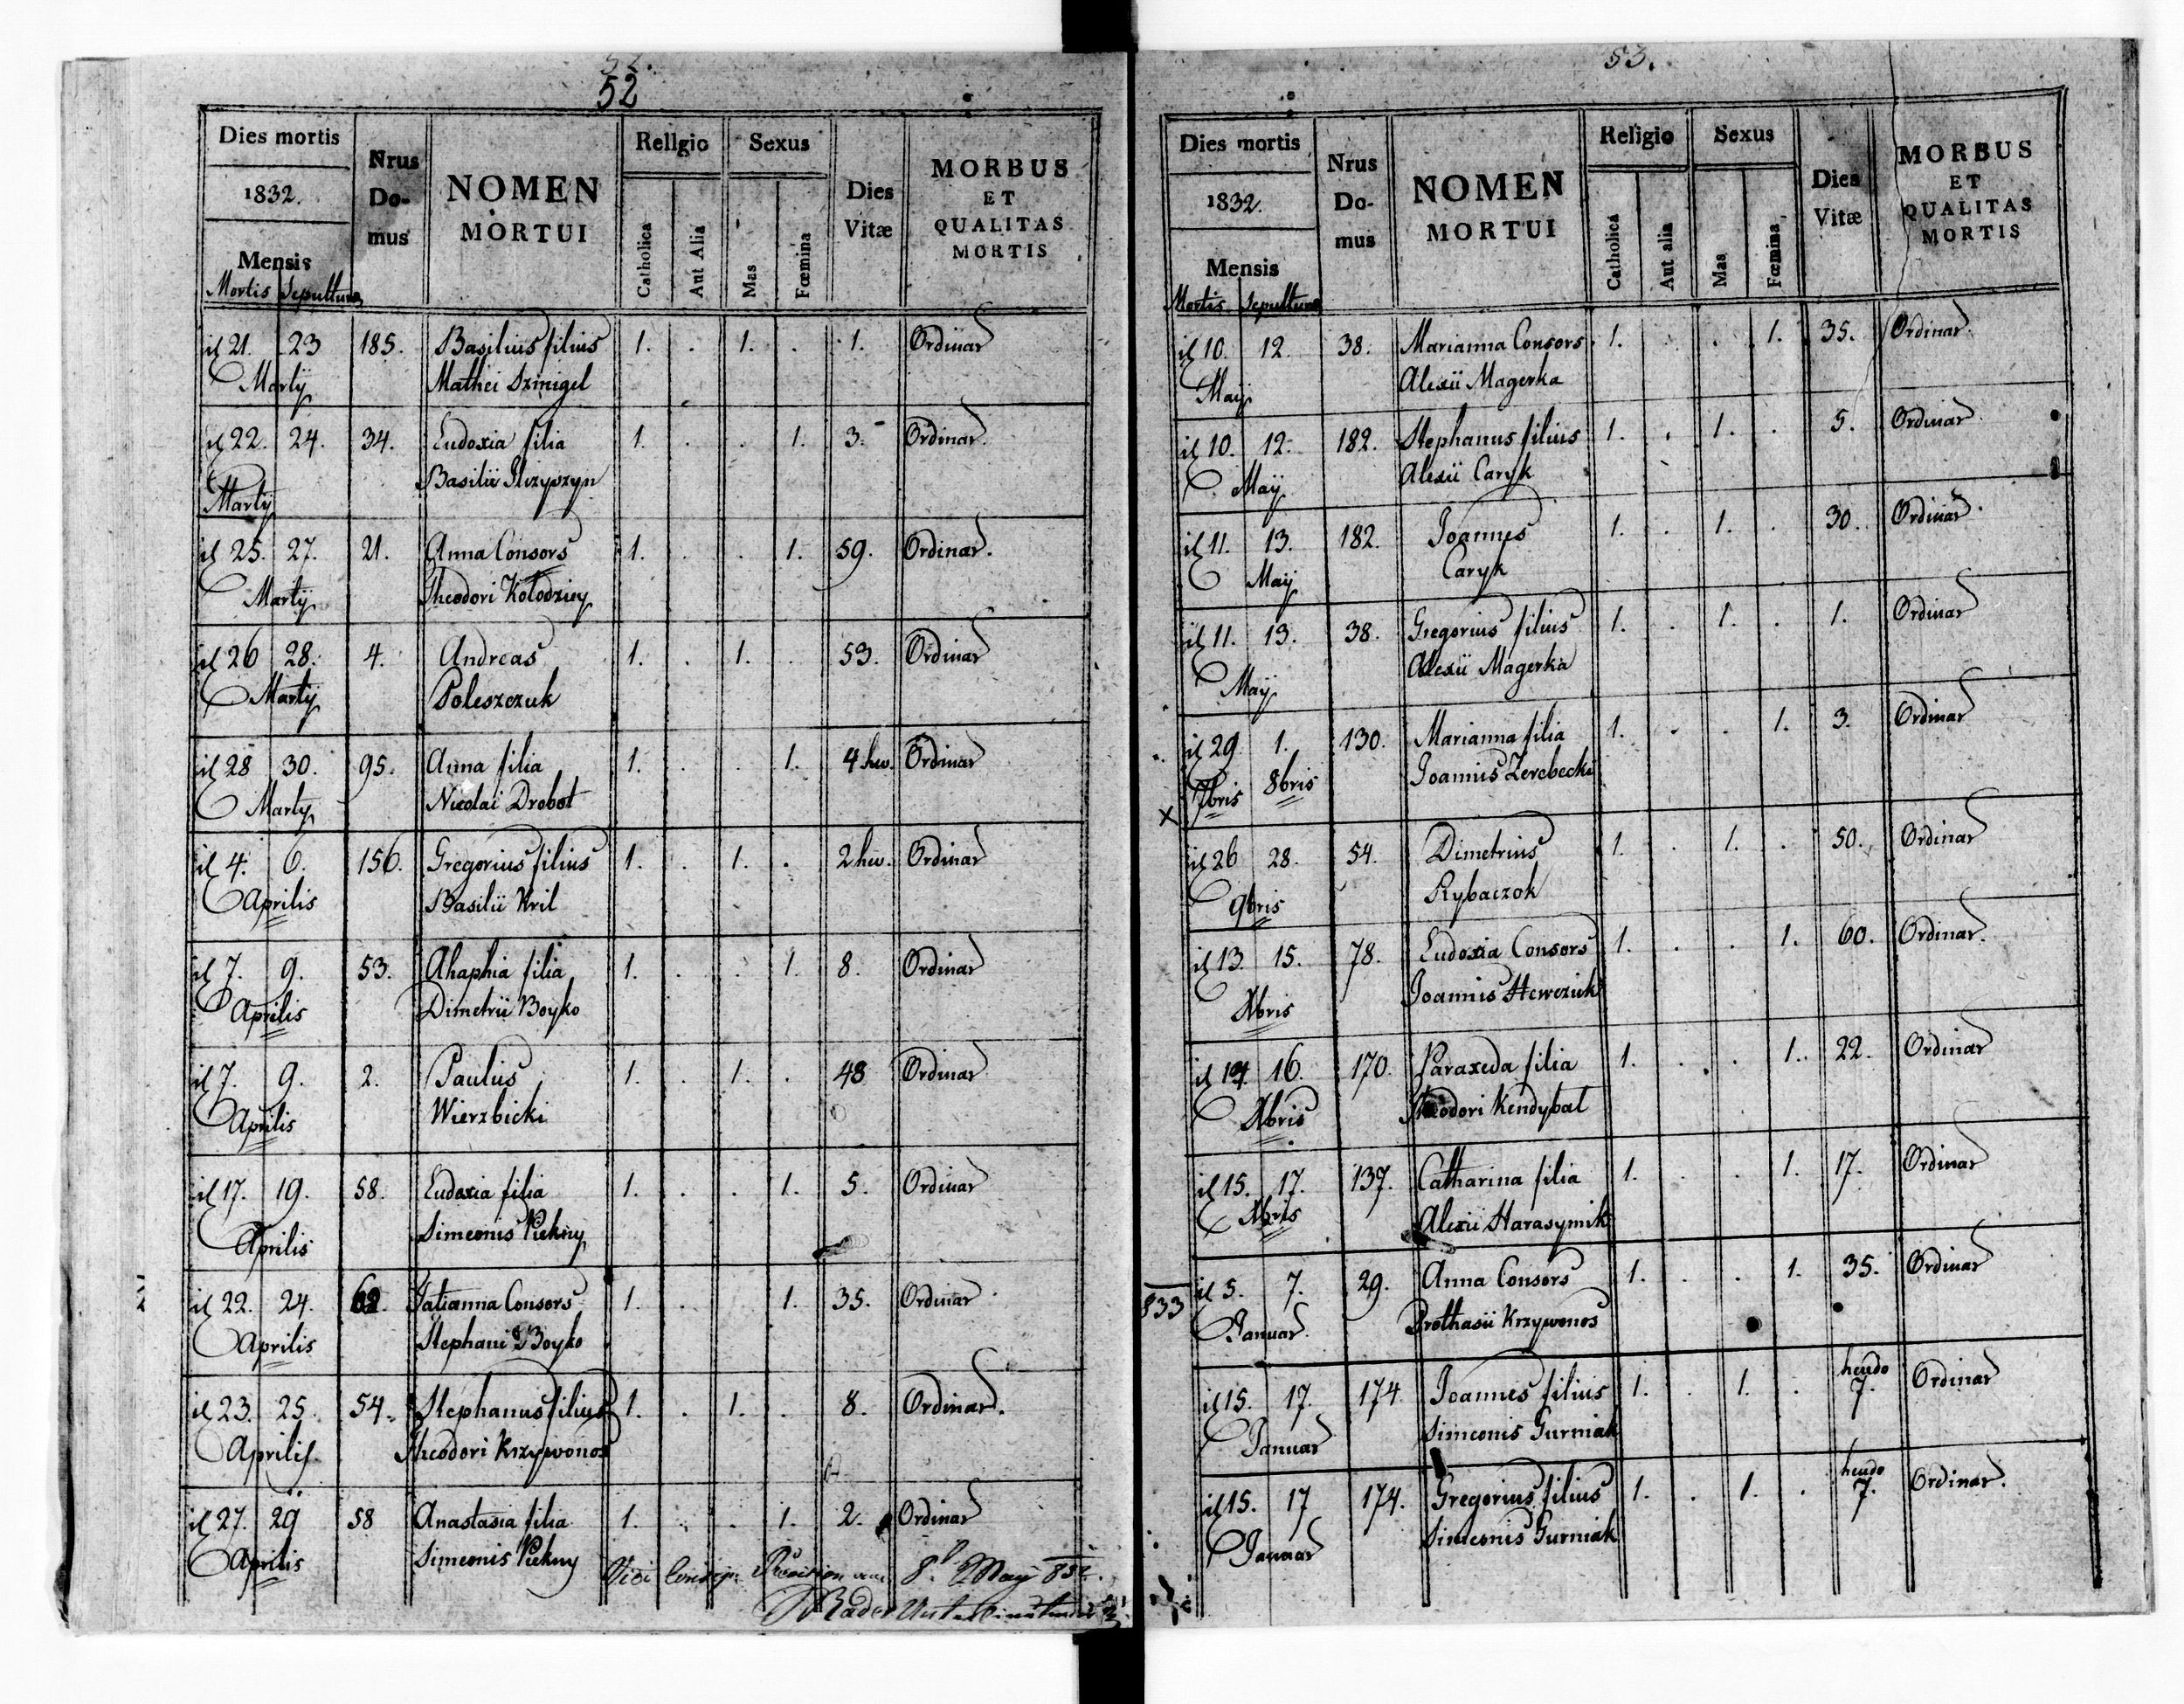 52.
52
Dies mortis
Nrus Domus
NOMEN MORTUI
Rellgio
Sexus
Dies Vitæ
MORBUS ET QUALITAS MORTIS
1832.
Mensis
Mortis Sepulturæ
Catholica
Aut Alia
Mas
Fœmina
il 21. 23 185. Basilius filius 1. . 1. . 1. Ordinar
Martÿ Mathei Szmigel
il 22. 24. 34. Eudoxia filia 1. . . 1. 3. Ordinar.
Martÿ Basilii
il 25. 27. 21. Anna Consors 1. . . 1. 59. Ordinar.
Martÿ Theodori Kolodziey
il 26 28. 4. Andreas 1. . 1. . 53. Ordinar
Martÿ Poleszczuk
il 28 30. 95. Anna filia 1. . . 1. 4 Ordinar
Marty Nicolai Drobot
il 4. 6. 156. Gregorius filius 1. . 1. . 2 Ordinar
Aprilis Basilii Kril
il 7. 9. 53. Ahaphia filia 1. . . 1. 8. Ordinar
Aprilis Dimetrii Boyko
il 7. 9. 2. Paulus 1. . 1. . 48 Ordinar
Aprilis Wierzbicki
il 17. 19. 58. Eudoxia filia 1. . . 1. 5. Ordinar
Aprilis Simeonis Piekny
il 22. 24. Tatianna Consors 1. . . 1. 35. Ordinar
Aprilis Stephani Boyko
il 23. 25. 54. Stephanus filius 1. . 1. . 8. Ordinar.
Aprilis Theodori Krzywonos
il 27. 29 58 Anastasia filia 1. . . 1. 2. Ordinar
Aprilis Simeonis Piekny
8 May 832.
53.
Dies mortis
Nrus Domus
NOMEN MORTUI
Religio
Sexus
Dies Vitæ
MORBUS ET QUALITAS MORTIS
1832.
Mensis
Mortis Sepulturæ
Catholica
Aut alia
Mas
Fœmina
il 10. 12. 38. Marianna Consors 1. . . 1. 35. Ordinar
Maÿ Alexii Magerka
il 10. 12. 182. Stephanus filius 1. . 1. . 5. Ordinar
Maÿ Alexii Caryk
il 11. 13. 182. Joannes 1. . 1. . 30. Ordinar
Maÿ Caryk
il 11. 13. 38. Gregorius filius 1. . 1. . 1. Ordinar
Maÿ Alexii Magerka
il 29 1. 130. Marianna filia 1. . . 1. 3. Ordinar
7bris 8bris Joannis Zerebecki
X
il 26 28. 54. Dimetrius 1. . 1. . 50. Ordinar
9bris Rybaczok
il 13. 15. 78. Eudoxia Consors 1. . . 1. 60. Ordinar.
Xbris Joannis Hewczuk
il 14. 16. 170. Paraxeda filia 1. . . 1. 22. Ordinar
Xbris Theodori Kendybal
il 15. 17. 137. Catharina filia 1. . . 1. 17. Ordinar
Xbris Alexii Harasymik
833 il 5. 7. 29. Anna Consors 1. . . 1. 35. Ordinar
Januar. Prothasii Krzywonos
il 15. 17. 174. Joannes filius 1. . 1. . 7. Ordinar
Januar Simeonis Gurniak
il 15. 17 174. Gregorius filius 1. . 1. . 7. Ordinar.
Januar Simeonis Gurniak